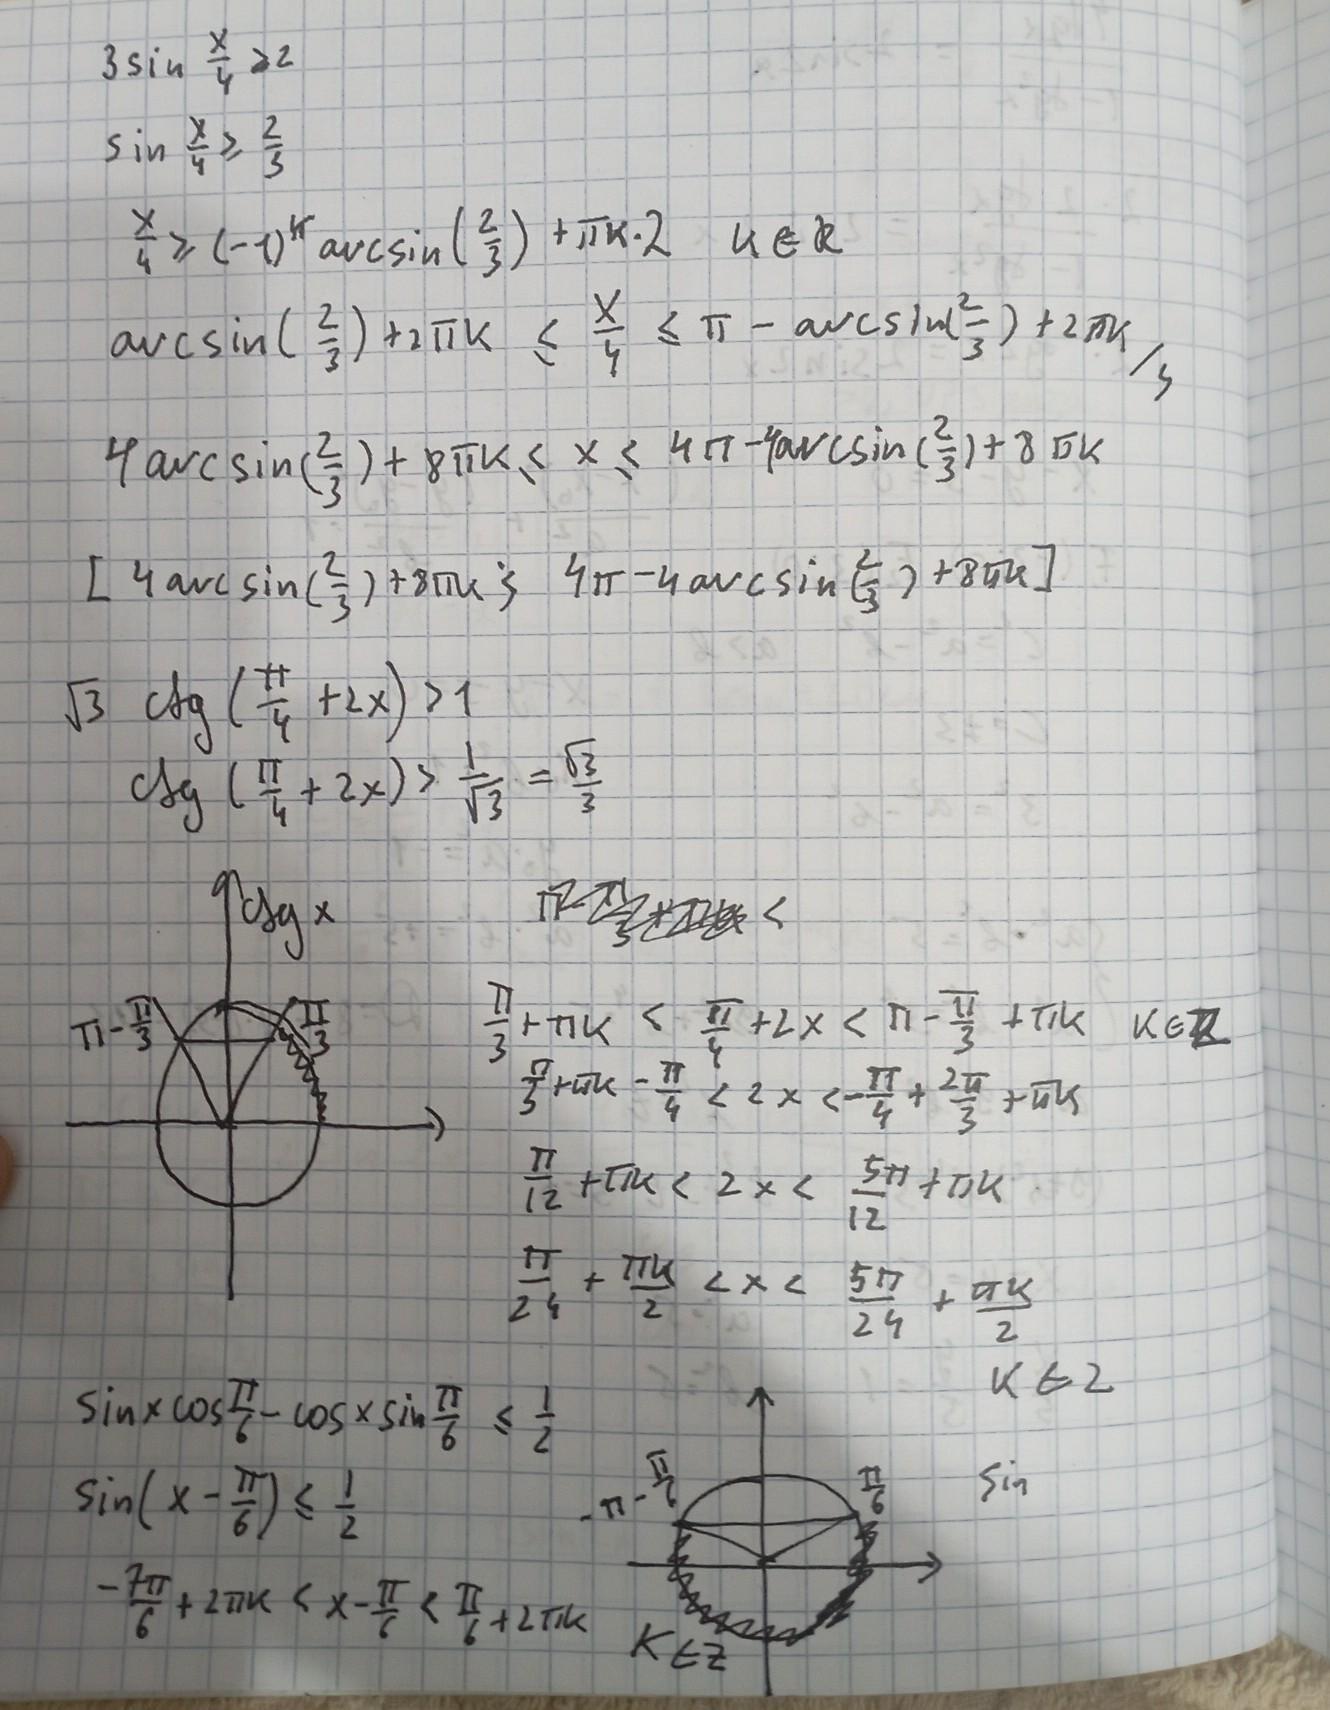 3 sin x/4 ≥ 2
sin x/4 ≥ 2/3
x/4 ≥ (-1)^k arcsin(2/3) + πk·2 k∈
arcsin(2/3) + 2πk ≤ x/4 ≤ π - arcsin(2/3) + 2πk /
4 arcsin(2/3) + 8πk ≤ x ≤ 4π - 4arcsin(2/3) + 8πk
[4 arcsin(2/3) + 8πk ; 4π - 4 arcsin(2/3) + 8πk]
√3 ctg (π/4 + 2x) > 1
ctg (π/4 + 2x) > 1/√3 = √3/3
ctg x
<
π - π/3
π/3
π/3 + πk < π/4 + 2x < π - π/3 + πk k∈Z
π/3 + πk - π/4 < 2x < -π/4 + 2π/3 + πk
π/12 + πk < 2x < 5π/12 + πk
π/24 + πk/2 < x < 5π/24 + πk/2
k∈Z
sin x cos π/6 - cos x sin π/6 ≤ 1/2
sin(x - π/6) ≤ 1/2
-π - π/6
π/6
sin
-7π/6 + 2πk < x - π/6 < π/6 + 2πk
k∈Z